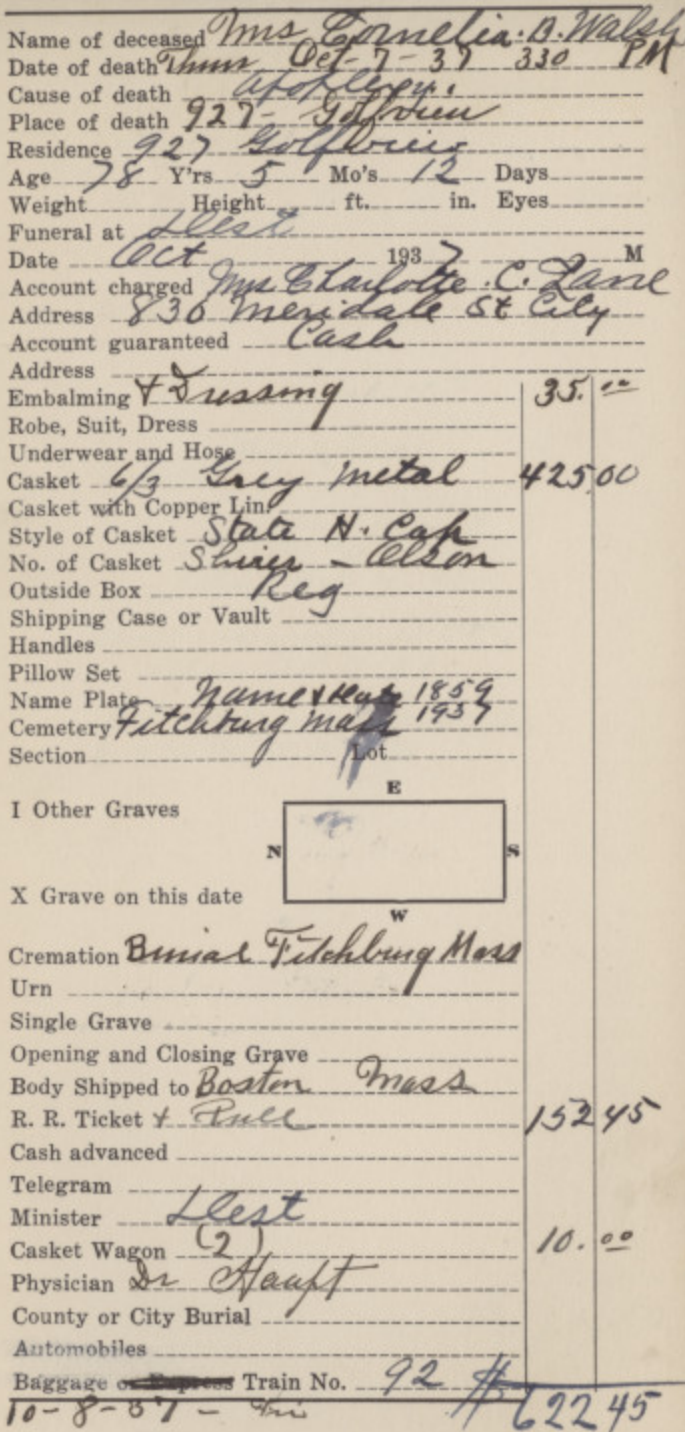 Name of deceased Mrs Cornelia. B. Walsh
Date of death Thurs Oct-7-37 330 PM
Cause of death apoplexy.
Place of death 927- Golfview
Residence 927 Golfview
Age 78 Y'rs 5 Mo's 12 Days
Weight Height ft. in. Eyes
Funeral at Dest
Date Oct 1937 M
Account charged Mrs Charlotte. C. Lane
Address 830 Meridale St City
Account guaranteed Cash
Address
Embalming & Dressing 35.00
Robe, Suit, Dress
Underwear and Hose
Casket 6/3 Grey Metal 425 00
Casket with Copper Lin.
Style of Casket State H. Cap
No. of Casket - Olson
Outside Box Reg
Shipping Case or Vault
Handles
Pillow Set
Name Plate Name & Date 1859
Cemetery Fitchburg Mass 1937
Section Lot
E
I Other Graves
N S
X Grave on this date
W
Cremation Burial Fitchburg Mass
Urn
Single Grave
Opening and Closing Grave
Body Shipped to Boston Mass
R. R. Ticket & Pull 152 45
Cash advanced
Telegram
Minister Dest
Casket Wagon (2) 10.00
Physician Dr Haupt
County or City Burial
Automobiles
Baggage or Express Train No. 92 $622 45
10-8-37 - Fri